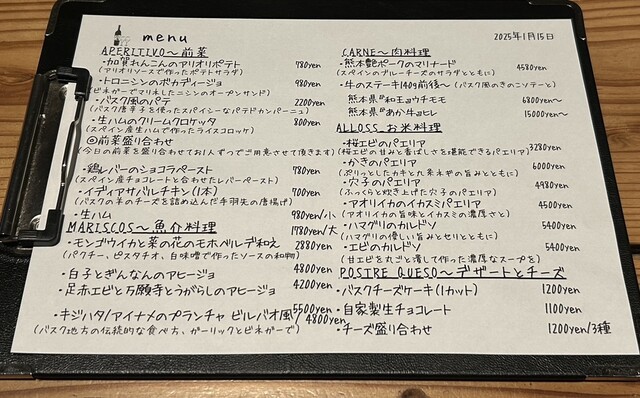 menu
2025年1月15日
APERITIVO～前菜
・加賀れんこんのアリオリポテト 780yen
(アリオリソースで作ったポテトサラダ)
・トロニシンのボカディージョ 980yen
(ビネガーでマリネしたニシンのオープンサンド)
・バスク風のパテ 2200yen
(バスク唐辛子を使ったスパイシーなパテドカンパーニュ)
・生ハムのクリームクロケッタ 800yen
(スペイン産生ハムで作ったライスコロッケ)
◎前菜盛り合わせ
(今日の前菜を盛り合わせてお1人ずつでご用意させて頂きます)
・鶏レバーのショコラペースト 780yen
(スペイン産チョコレートと合わせたレバーペースト)
・イディアサバルチキン(1本) 700yen
(バスクの羊のチーズを詰め込んだ手羽先の唐揚げ)
・生ハム 980yen/小
1780yen/大
MARISCOS～魚介料理
・モンゴウイカと菜の花のモホベルデ和え 2880yen
(パクチー、ピスタチオ、白味噌で作ったソースの和物)
・白子とぎんなんのアヒージョ 4800yen
・足赤エビと万願寺とうがらしのアヒージョ 4200yen
・キジハタ/アイナメのプランチャ ビルバオ風 5500yen/4800yen
(バスク地方の伝統的な食べ方、ガーリックとビネガーで)
CARNE～肉料理
・熊本艶ポークのマリナード 4580yen
(スペインのブルーチーズのサラダとともに)
・牛のステーキ140g前後～(バスク風のきのこソテーと)
熊本県"和王"ウチモモ 6800yen～
熊本県"あか牛"ヒレ 15000yen～
ALLOSS お米料理
・桜エビのパエリア 3280yen
(桜エビの甘みと香ばしさを堪能できるパエリア)
・かきのパエリア 6000yen
・穴子のパエリア 4980yen
(ふっくらと炊き上げた穴子のパエリア)
・アオリイカのイカスミパエリア 4500yen
(アオリイカの旨味とイカスミの濃厚さと)
・ハマグリのカルドソ 5400yen
(ハマグリの優しい旨みとセリとともに)
・エビのカルドソ 5400yen
(甘エビを丸ごと潰して作った濃厚なスープを)
POSTRE QUESO～デザートとチーズ
・バスクチーズケーキ(1カット) 1200yen
・自家製生チョコレート 1100yen
・チーズ盛り合わせ 1200yen/3種